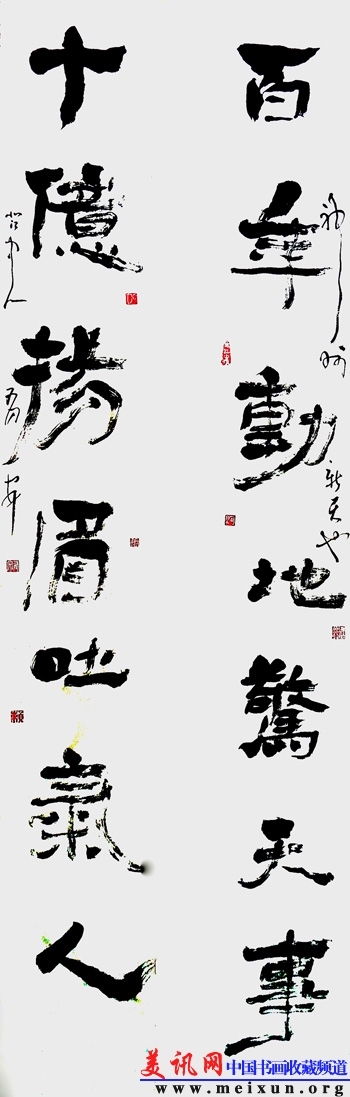 百年動地驚天事
十億揚眉吐氣人
美讯网 中国书画收藏频道
www.meixun.org